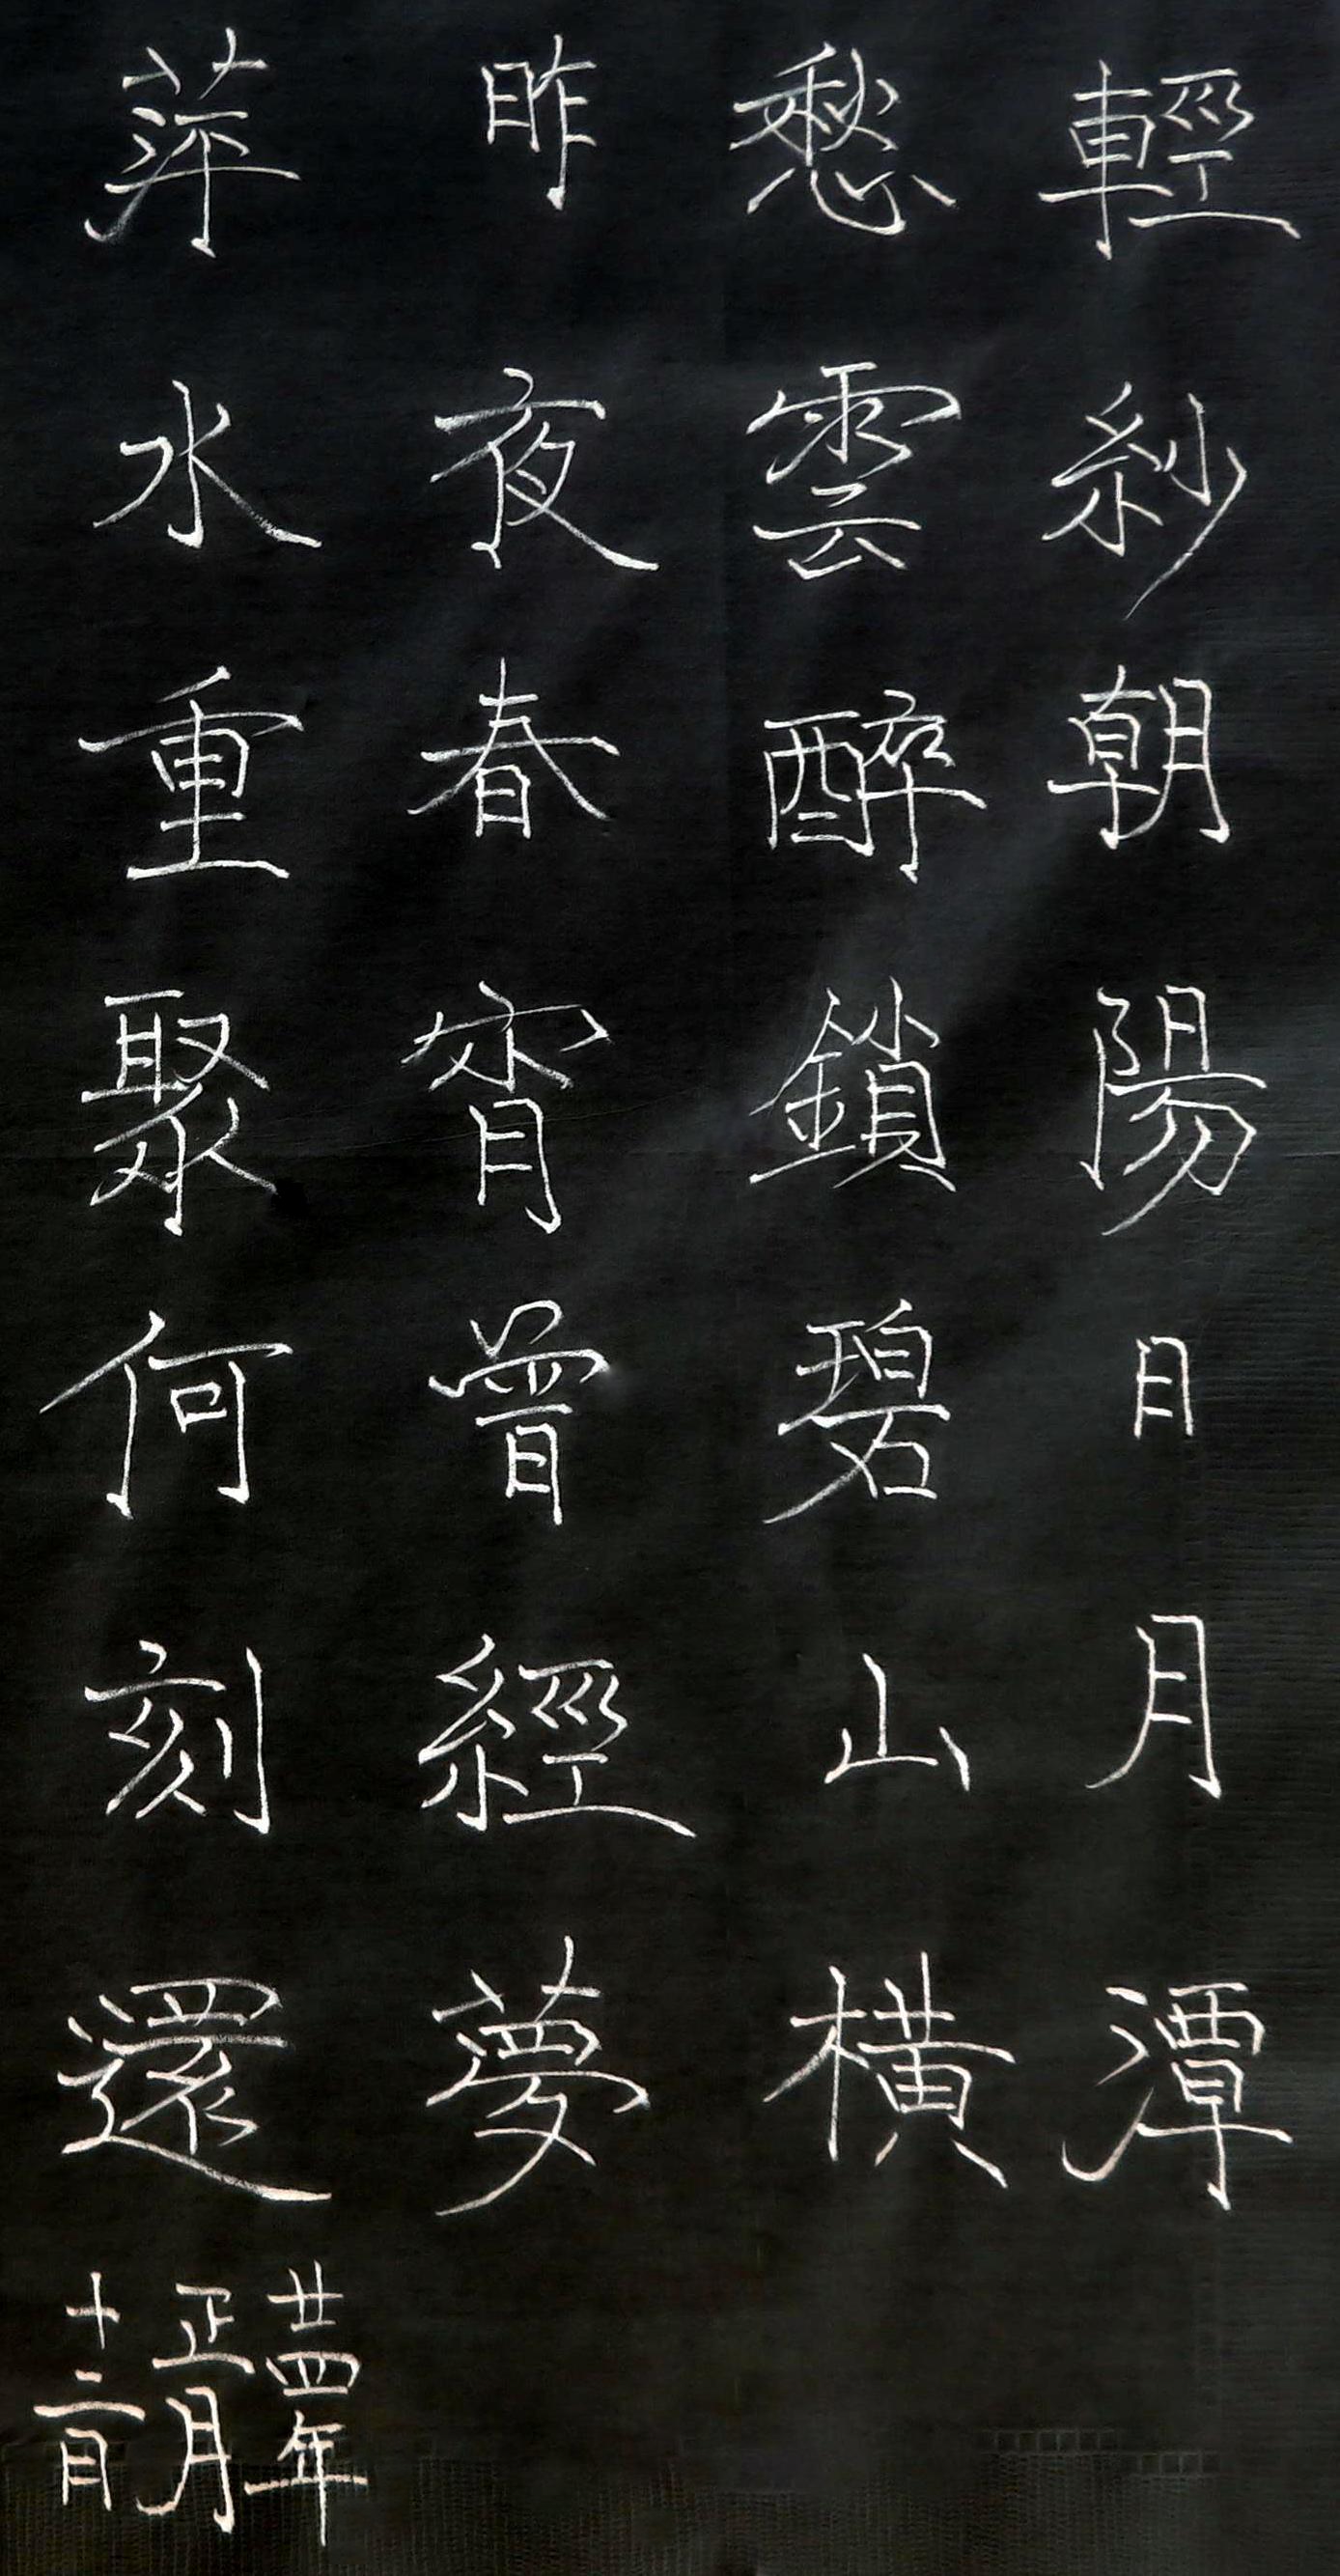 輕紗朝陽日月潭
愁雲醉鎖碧山橫
昨夜春宵曾經夢
萍水重聚何刻還
廿四年
正月
十二日